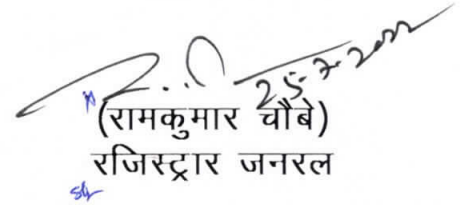 25-7-2022
(रामकुमार चौबे)
रजिस्ट्रार जनरल